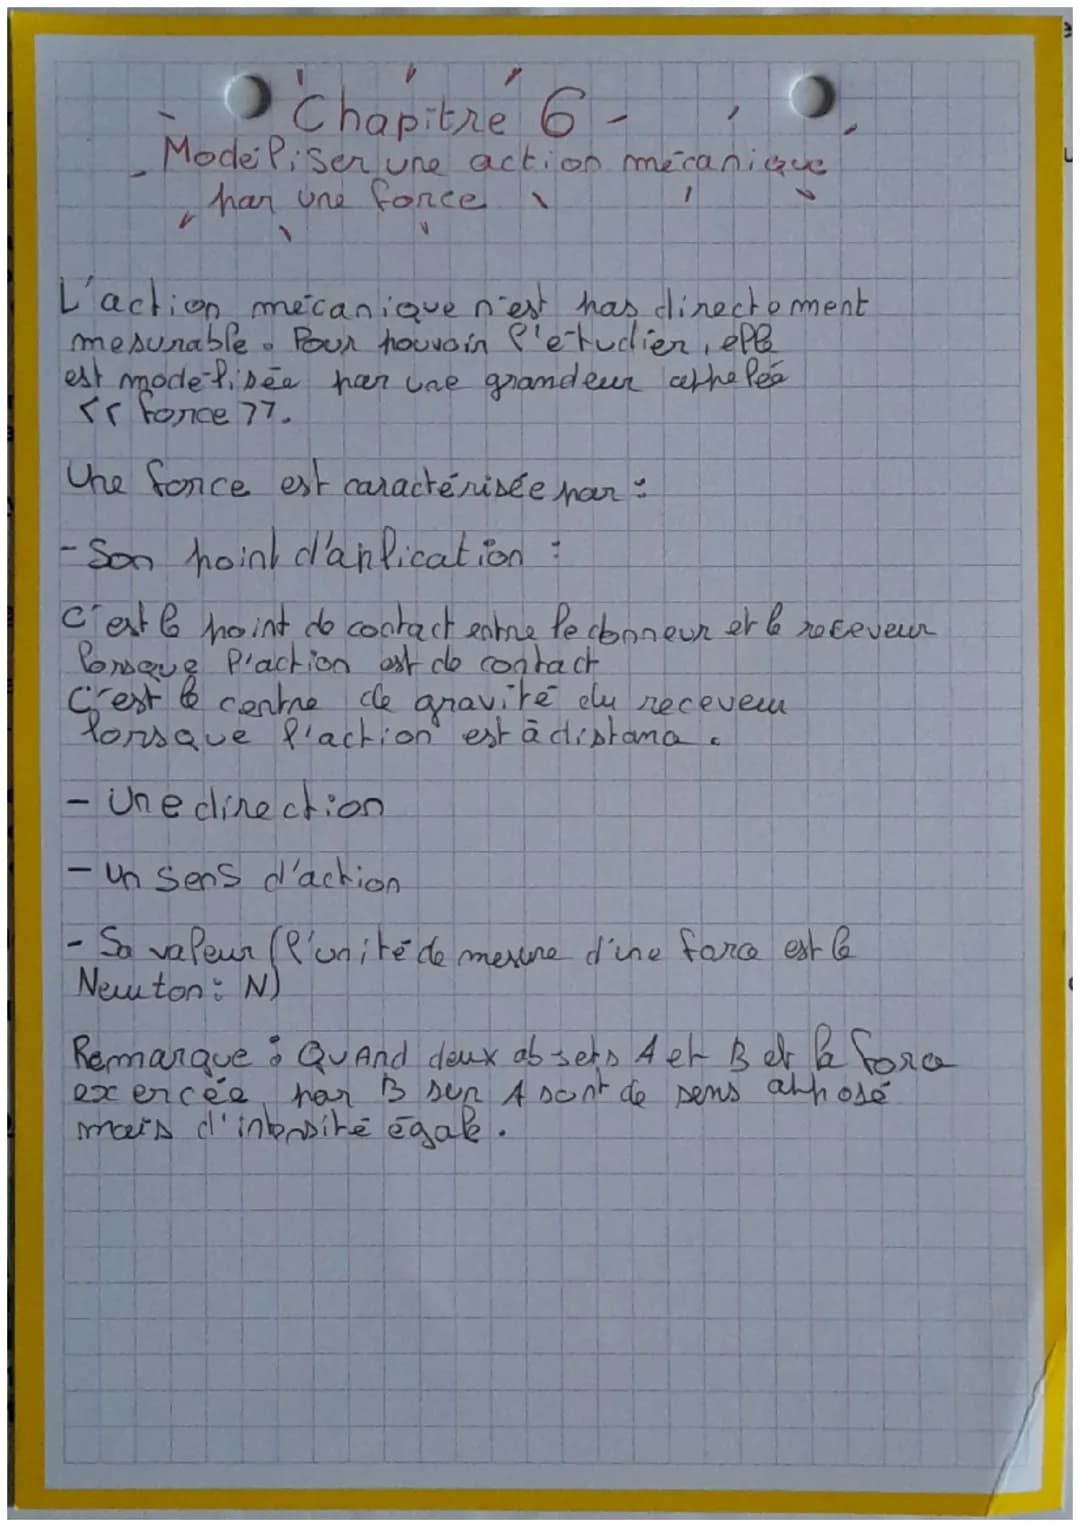 Chapitre 6
Modéliser une action mécanique
par une force
L'action mécanique n'est pas directement
mesurable. Pour pouvoir l'étudier, elle
est modélisée par une grandeur appelée
<< force >>.
Une force est caractérisée par :
- Son point d'aplication :
C'est le point de contact entre le donneur et le receveur
lorsque l'action est de contact
C'est le centre de gravité du receveur
lorsque l'action est à distance.
- Une direction
- Un sens d'action
- Sa valeur (l'unité de mesure d'une force est le
Newton : N)
Remarque : Quand deux objets A et B et la force
exercée par B sur A sont de sens opposé
mais d'intensité égale.